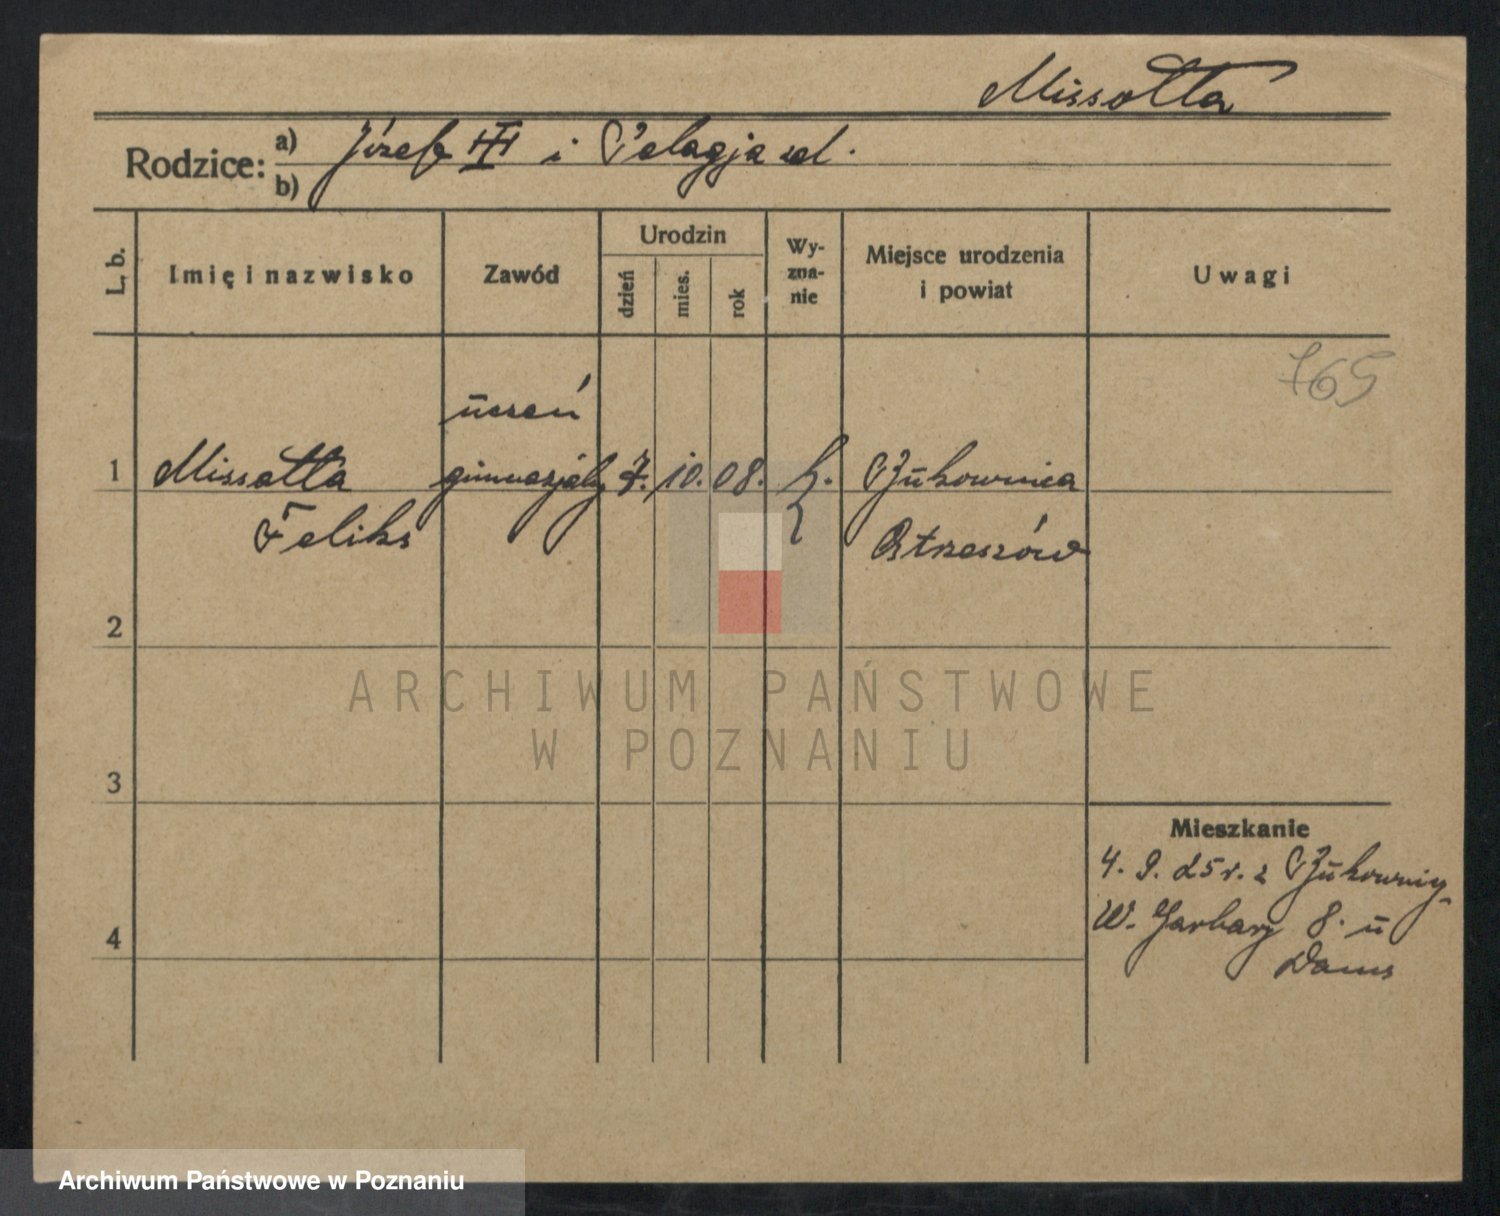 Missotta
Rodzice: a) Józef i Pelagja
b)
L. b.
Imię i nazwisko
Zawód
Urodzin
dzień
mies.
rok
Wy-
zna-
nie
Miejsce urodzenia
i powiat
Uwagi
765
uczeń
1 Missotta gimnazjalny 7. 10. 08. k. Bukownica
Feliks Ostrzeszów
2
3
4
Mieszkanie
4. 9. 25 r. z Bukownicy
W. Garbary 8. u
Dams
ARCHIWUM PAŃSTWOWE
W POZNANIU
Archiwum Państwowe w Poznaniu